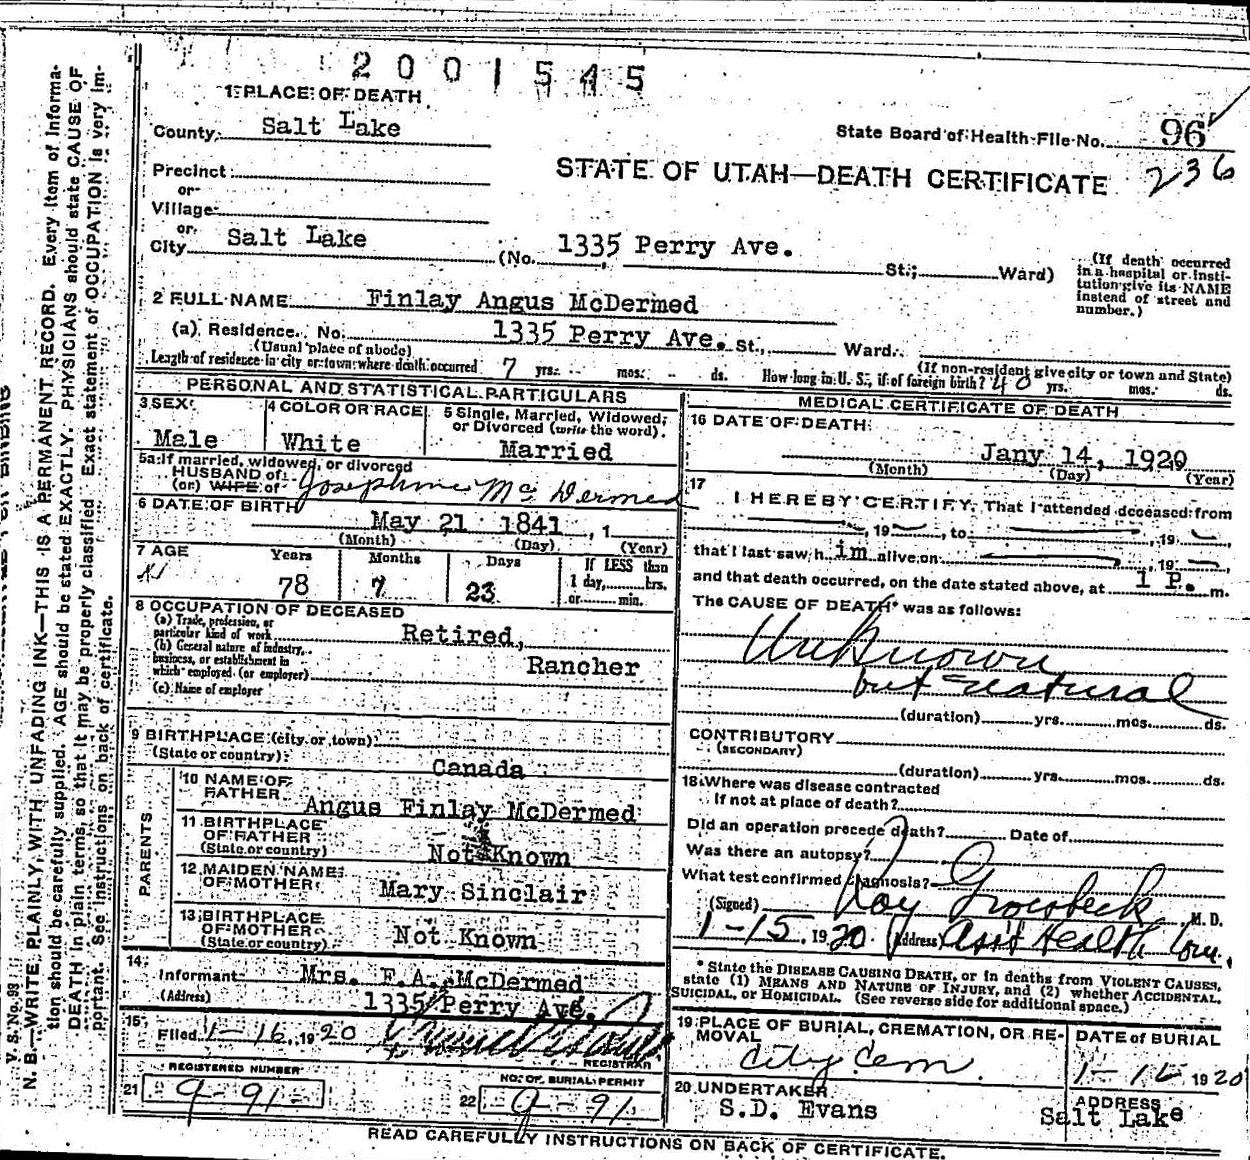 2001545
1 PLACE OF DEATH
County Salt Lake
State Board of Health File No. 96
236
STATE OF UTAH—DEATH CERTIFICATE
Precinct
or
Village
or
City Salt Lake (No. 1335 Perry Ave. St.; Ward)
(If death occurred in a hospital or institution give its NAME instead of street and number.)
2 FULL NAME Finlay Angus McDermed
(a) Residence. No. 1335 Perry Ave. St., Ward.
(Usual place of abode) (If non-resident give city or town and State)
Length of residence in city or town where death occurred 7 yrs. mos. ds. How long in U. S., if of foreign birth? 40 yrs. mos. ds.
PERSONAL AND STATISTICAL PARTICULARS
3 SEX 4 COLOR OR RACE 5 Single, Married, Widowed, or Divorced (write the word).
Male White Married
5a If married, widowed, or divorced
HUSBAND of
(or) WIFE of Josephine McDermed
6 DATE OF BIRTH
May 21 1841, 1
(Month) (Day) (Year)
7 AGE Years Months Days If LESS than
78 7 23 1 day, hrs.
or min.
8 OCCUPATION OF DECEASED
(a) Trade, profession, or
particular kind of work Retired,
(b) General nature of industry,
business, or establishment in
which employed (or employer) Rancher
(c) Name of employer
9 BIRTHPLACE (city or town)
(State or country) Canada
PARENTS
10 NAME OF
FATHER Angus Finlay McDermed
11 BIRTHPLACE
OF FATHER
(State or country) Not Known
12 MAIDEN NAME
OF MOTHER Mary Sinclair
13 BIRTHPLACE
OF MOTHER
(State or country) Not Known
14
Informant Mrs. F.A. McDermed
(Address) 1335 Perry Ave.
15
Filed 1-16, 1920
REGISTRAR
REGISTERED NUMBER NO. OF BURIAL PERMIT
21 9-91 22 9-91
MEDICAL CERTIFICATE OF DEATH
16 DATE OF DEATH
Jany 14, 1920
(Month) (Day) (Year)
17
I HEREBY CERTIFY, That I attended deceased from
, 19 , to , 19
that I last saw him alive on , 19
and that death occurred, on the date stated above, at 1 P. m.
The CAUSE OF DEATH* was as follows:
Unknown
but natural
(duration) yrs. mos. ds.
CONTRIBUTORY
(SECONDARY)
(duration) yrs. mos. ds.
18 Where was disease contracted
if not at place of death?
Did an operation precede death? Date of
Was there an autopsy?
What test confirmed diagnosis?
(Signed) Roy Groesbeck M. D.
1-15, 1920 (Address) Asst Health Com.
* State the DISEASE CAUSING DEATH, or in deaths from VIOLENT CAUSES,
state (1) MEANS AND NATURE OF INJURY, and (2) whether ACCIDENTAL,
SUICIDAL, or HOMICIDAL. (See reverse side for additional space.)
19 PLACE OF BURIAL, CREMATION, OR RE-
MOVAL
City Cem
DATE of BURIAL
1920
20 UNDERTAKER
S.D. Evans
ADDRESS
Salt Lake
READ CAREFULLY INSTRUCTIONS ON BACK OF CERTIFICATE.
V. S. No. 98
N. B.—WRITE PLAINLY, WITH UNFADING INK—THIS IS A PERMANENT RECORD. Every item of informa-
tion should be carefully supplied. AGE should be stated EXACTLY. PHYSICIANS should state CAUSE OF
DEATH in plain terms, so that it may be properly classified. Exact statement of OCCUPATION is very im-
portant. See instructions on back of certificate.